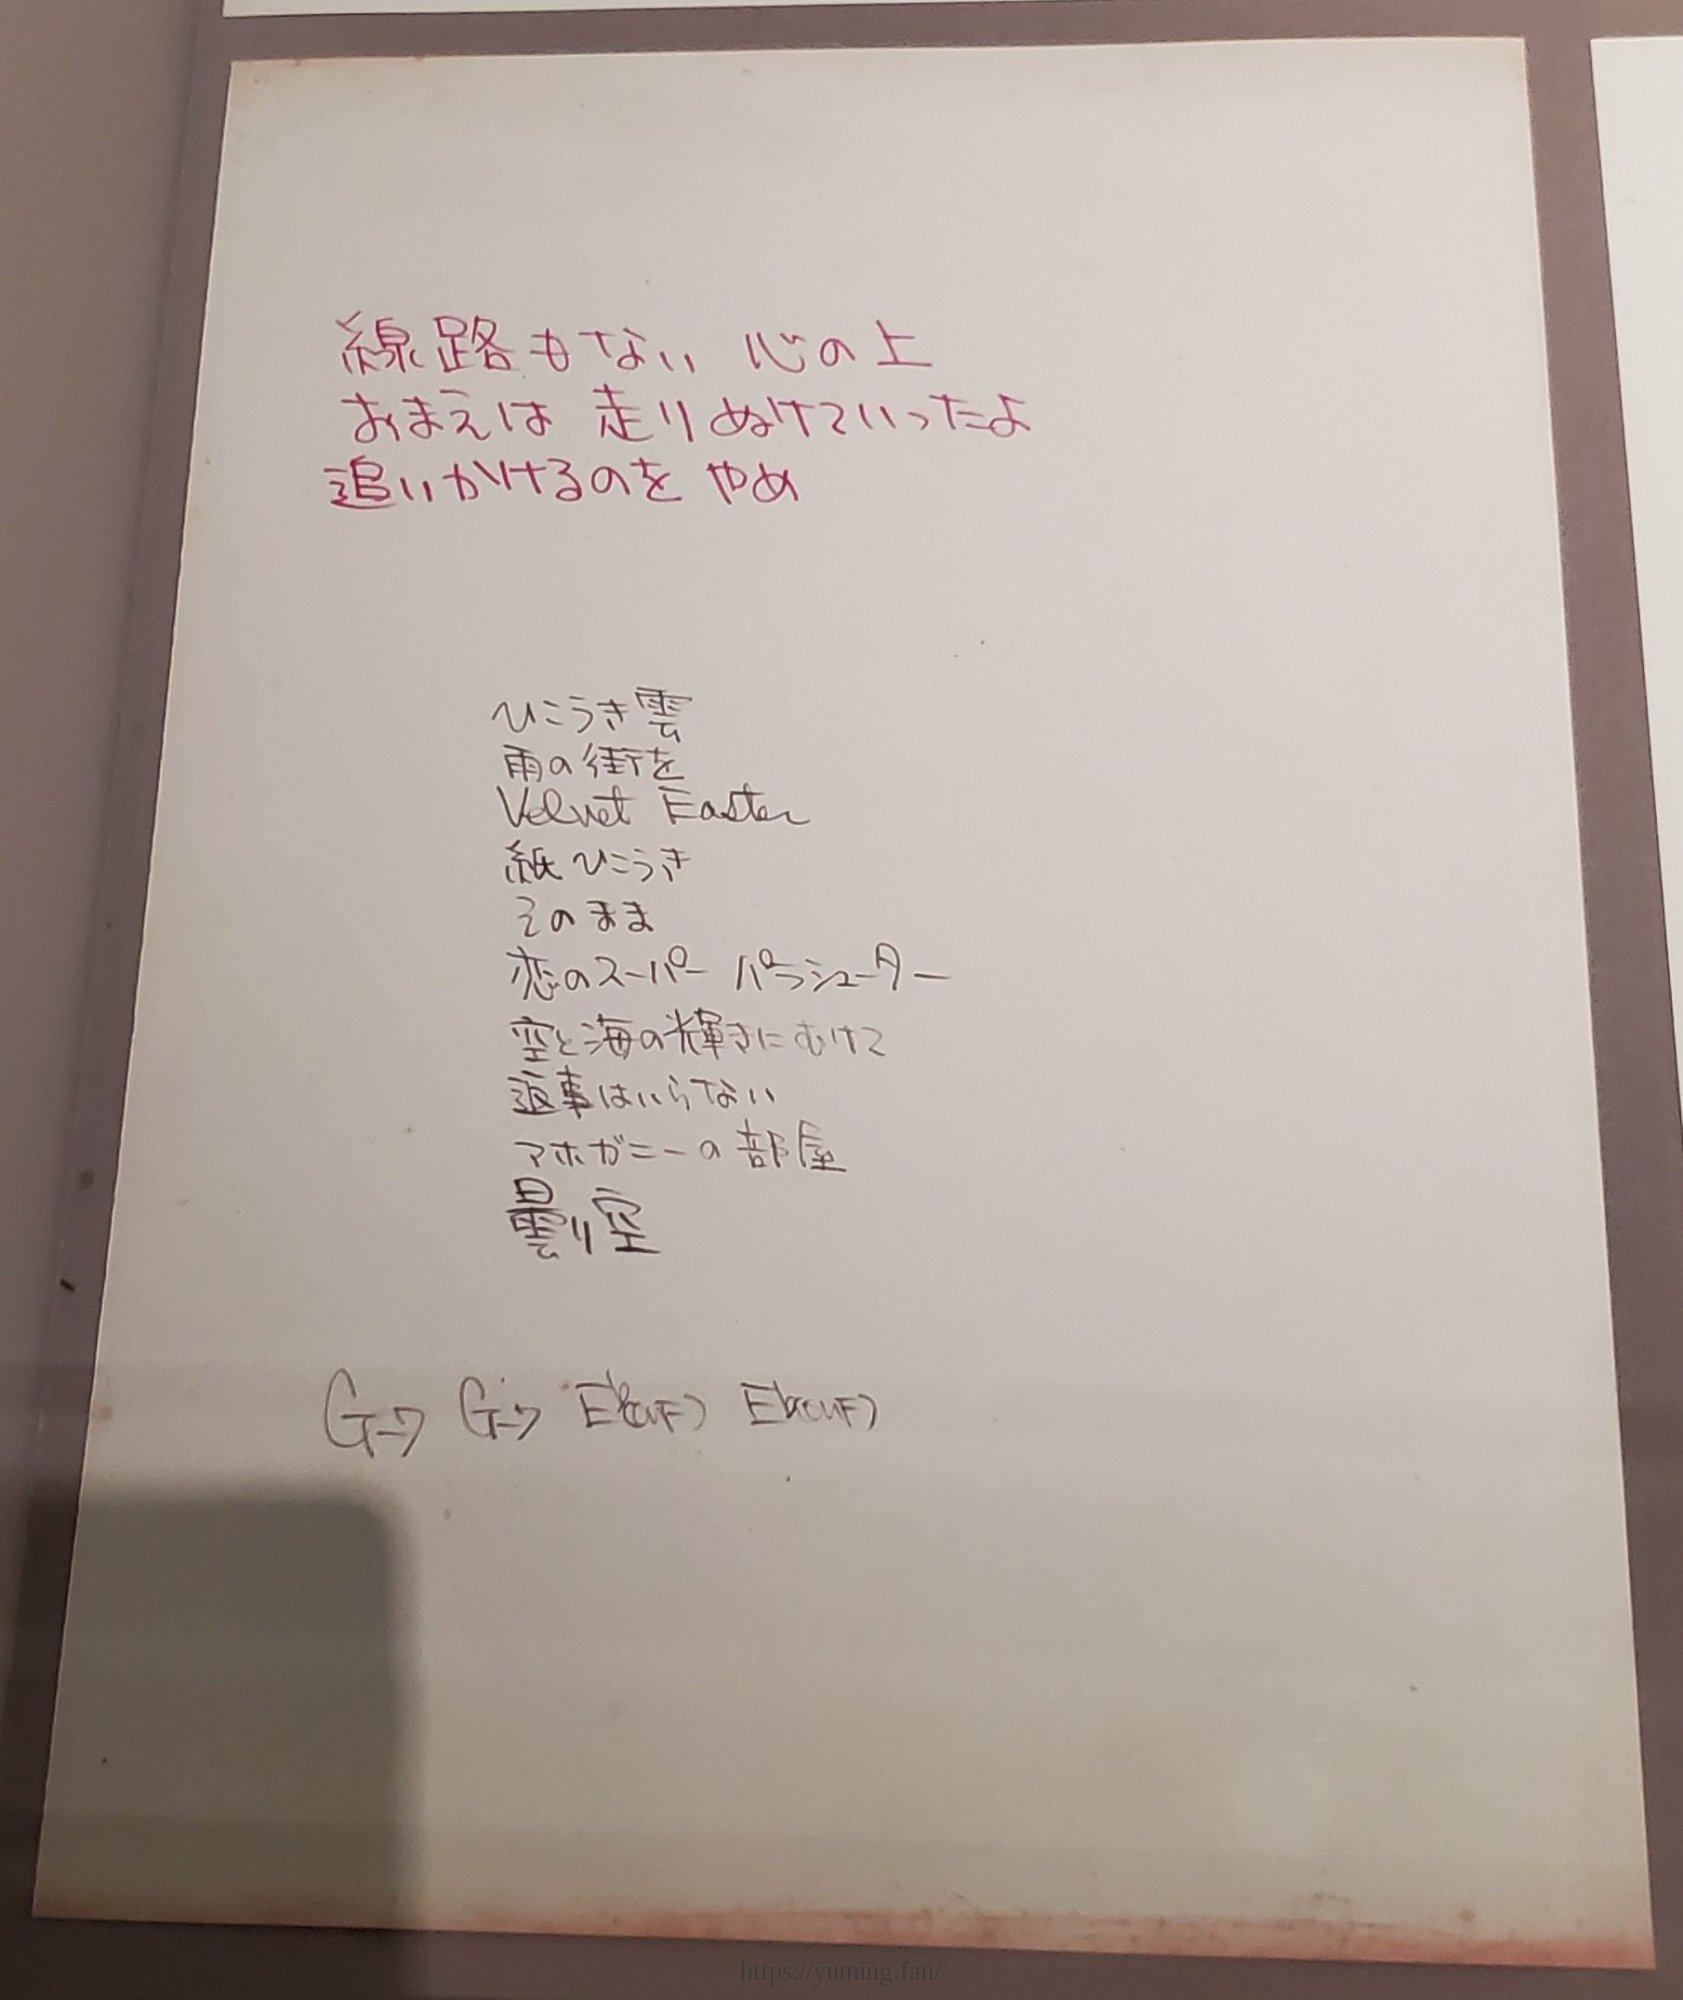 線路もない 心の上
おまえは 走りぬけていったよ
追いかけるのを やめ
ひこうき雲
雨の街を
Velvet Easter
紙ひこうき
そのまま
恋のスーパー パラシューター
空と海の輝きにむけて
返事はいらない
マホガニーの部屋
曇り空
https://yuming.fan/